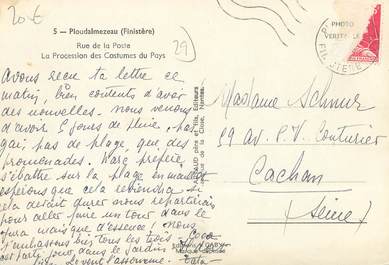 20€
5 - Ploudalmezeau (Finistère)
Rue de la Poste
La Procession des Costumes du Pays
29
PHOTO
VERITABLE
FINISTERE
Avons reçu ta lettre ce
matin, bien contents d'avoir
des nouvelles. nous venons
d'avoir 5 jours de pluie, pas
gai, pas de plage, que des
promenades. Marc préfère
s'ébattre sur la plage en maillot
espérons que cela reviendra si
cela devait durer nous repartirions
pour aller faire un tour dans le
Jura mais que d'essence! nous
t'embrassons bien tous les trois. Coco
est parti jouer dans le jardin
le vent l'assomme. Tata
Madame Schmur
59 av. P. V. Couturier
Cachan
(Seine)